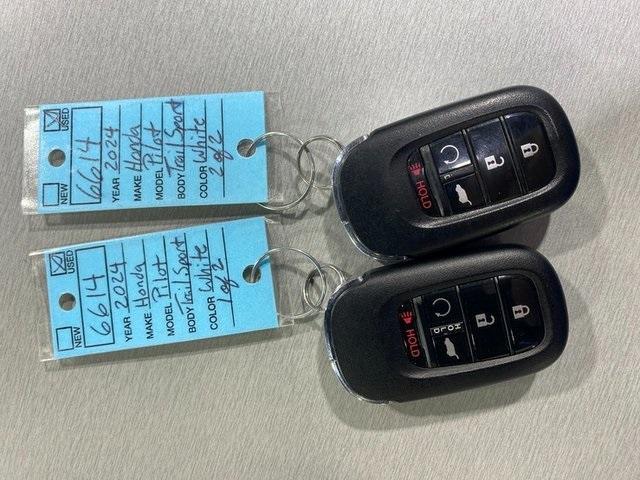 NEW USED
6614
YEAR 2024
MAKE Honda
MODEL Pilot
BODY Trail Sport
COLOR White
2 of 2
HOLD
NEW USED
6614
YEAR 2024
MAKE Honda
MODEL Pilot
BODY Trail Sport
COLOR White
1 of 2
HOLD
HOLD